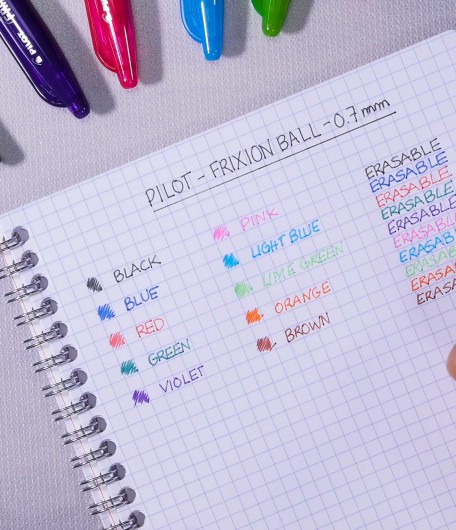 PILOT
PILOT - FRIXION BALL - 0.7mm
BLACK
BLUE
RED
GREEN
VIOLET
PINK
LIGHT BLUE
LIME GREEN
ORANGE
BROWN
ERASABLE
ERASABLE
ERASABLE
ERASABLE
ERASABLE
ERASABLE
ERASABLE
ERASABLE
ERASABLE
ERASABLE